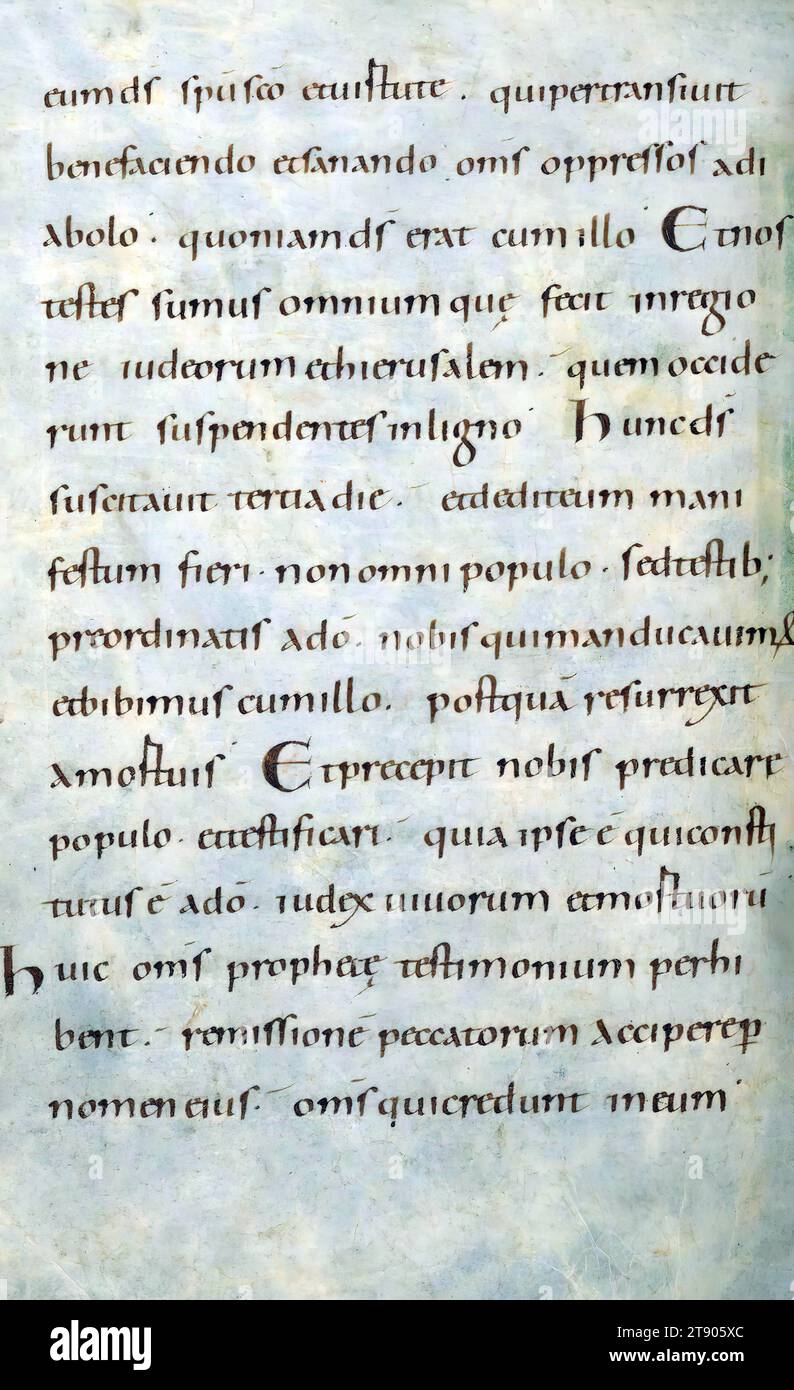 eum dš spū scō et uirtute . qui pertransiuit
benefaciendo et sanando om̄s oppressos a di
abolo . quoniam dš erat cum illo Et nos
testes sumus omnium quę fecit in regio
ne iudeorum et hierusalem . quem occide
runt suspendentes in ligno Hunc dš
suscitauit tertia die . et dedit eum mani
festum fieri . non omni populo . sed testib;
preordinatis a dō . nobis qui manducauim&
et bibimus cum illo . postquā resurrexit
a mortuis Et precepit nobis predicare
populo . et testificari . quia ipse ē qui consti
tutus ē a dō . iudex uiuorum et mortuorū
huic om̄s prophetę testimonium perhi
bent . remissionē peccatorum accipere ꝑ
nomen eius . om̄s qui credunt in eum
alamy
a
Image ID: 2T905XC
www.alamy.com